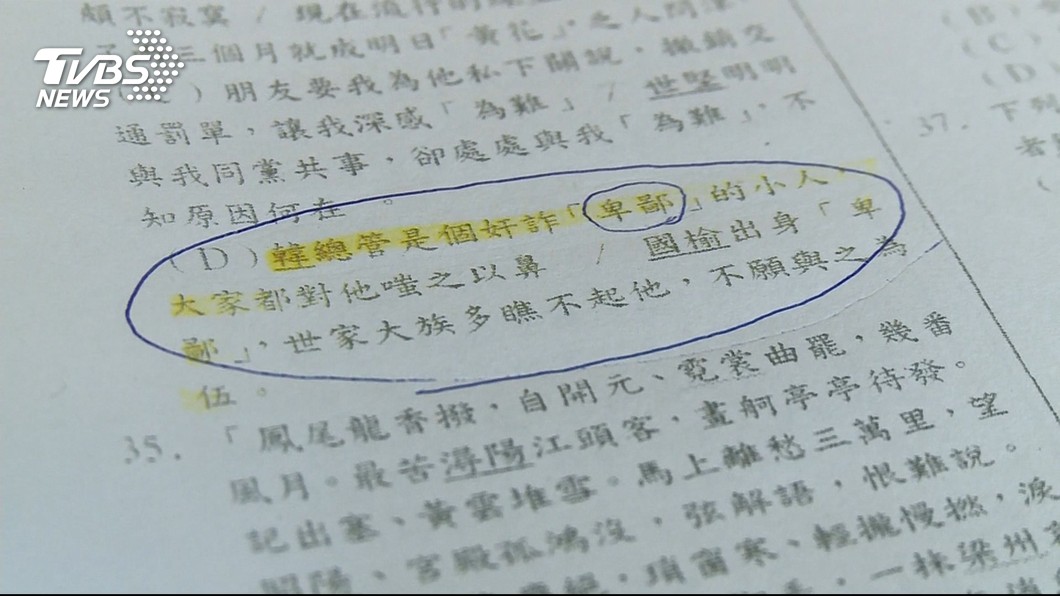 頗不寂寞 / 現在流行的
三個月就成明日「黃花」
TVBS
NEWS
) 朋友要我為他私下關說，撤銷交
通罰單，讓我深感「為難」 / 世堅明明
與我同黨共事，卻處處與我「為難」，不
知原因何在。
(D) 韓總管是個奸詐「卑鄙」的小人，
大家都對他嗤之以鼻 / 國榆出身「卑
鄙」，世家大族多瞧不起他，不願與之為
伍。
35. 「鳳尾龍香撥，自開元、霓裳曲罷，幾番
風月。最苦潯陽江頭客，畫舸亭亭待發。
記出塞、黃雲堆雪。馬上離愁三萬里，望
昭陽、宮殿孤鴻沒，弦解語，恨難說。
瑣窗寒、輕攏慢撚，淚
一抹梁州
(B)
(C)
(D)
37. 下列
者